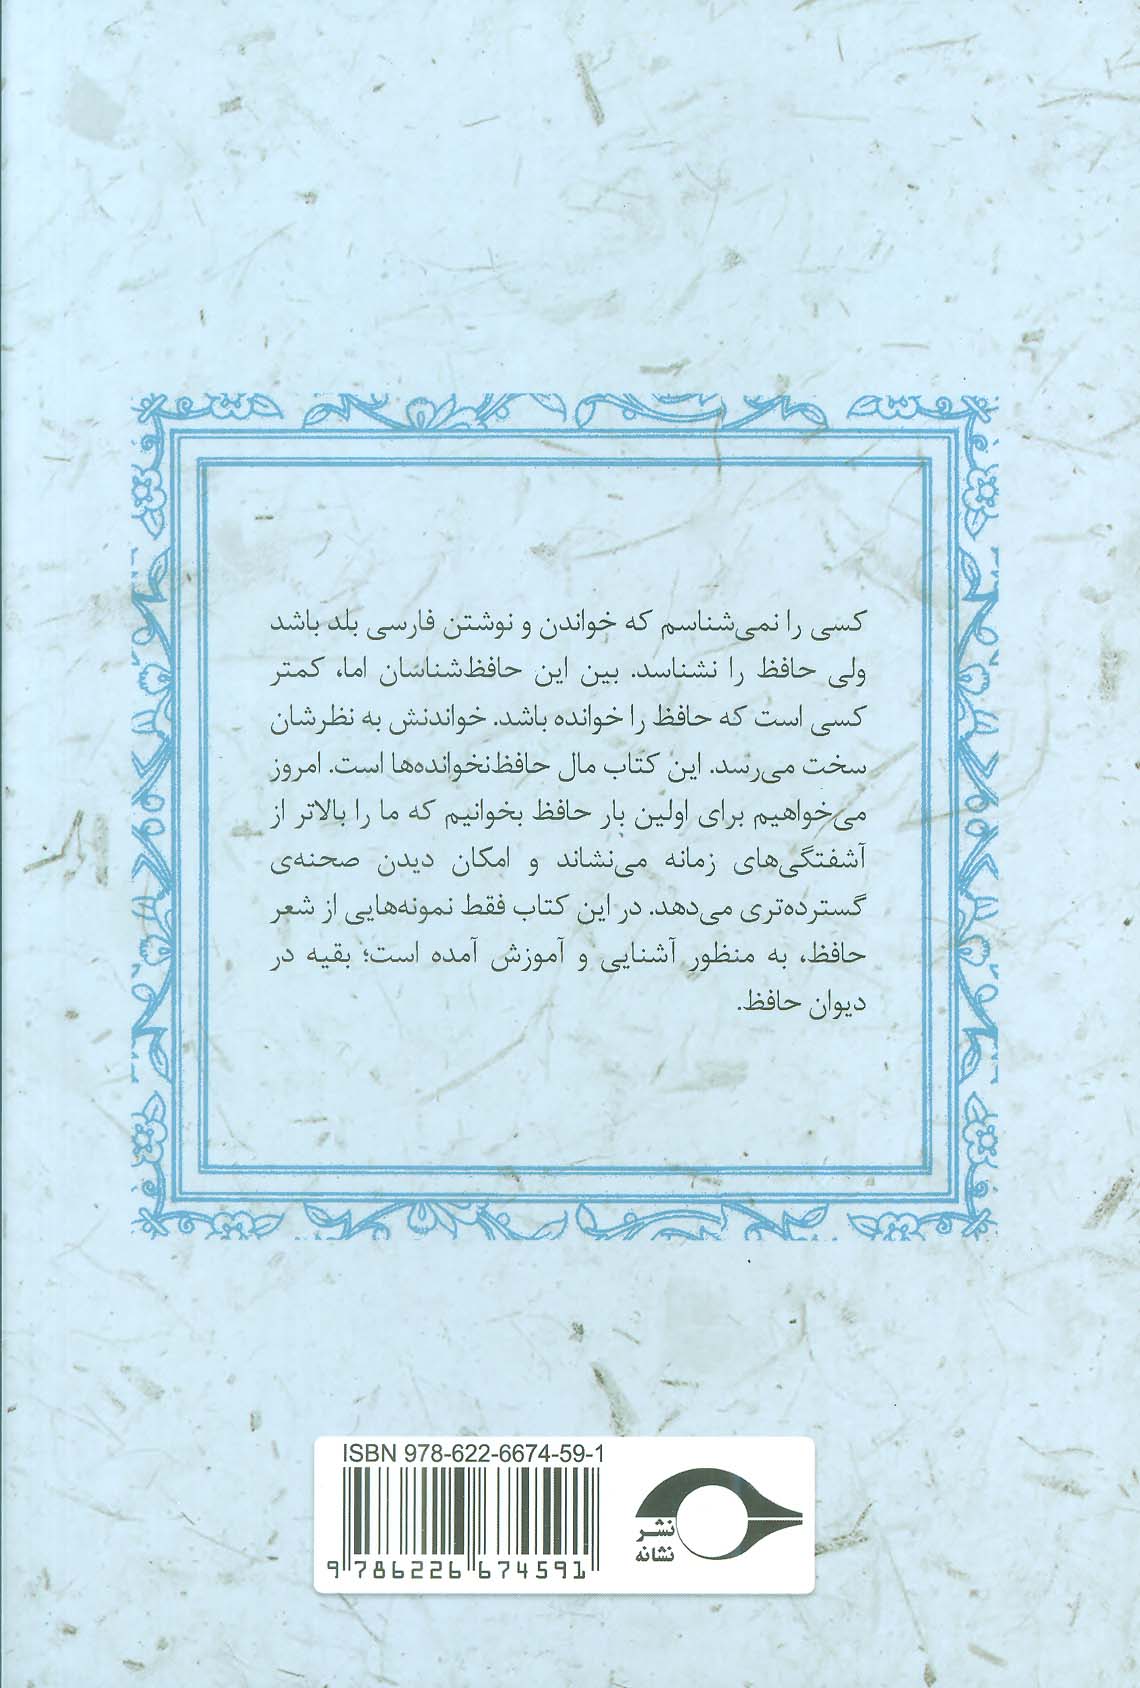 کسی را نمی‌شناسم که خواندن و نوشتن فارسی بلد باشد
ولی حافظ را نشناسد. بین این حافظ‌شناسان اما، کمتر
کسی است که حافظ را خوانده باشد. خواندنش به نظرشان
سخت می‌رسد. این کتاب مال حافظ‌نخوانده‌ها است. امروز
می‌خواهیم برای اولین بار حافظ بخوانیم که ما را بالاتر از
آشفتگی‌های زمانه می‌نشاند و امکان دیدن صحنه‌ی
گسترده‌تری می‌دهد. در این کتاب فقط نمونه‌هایی از شعر
حافظ، به منظور آشنایی و آموزش آمده است؛ بقیه در
دیوان حافظ.
ISBN 978-622-6674-59-1
9 786226 674591
نشر
نشانه